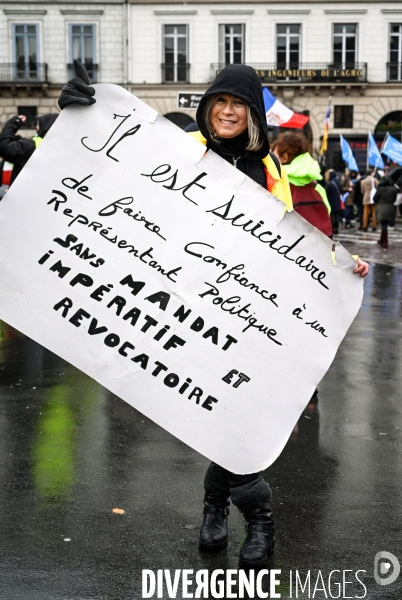 INGENIEURS de l'AGRO
Il est suicidaire
de faire Confiance à un
Représentant Politique
SANS MANDAT
IMPÉRATIF ET
REVOCATOIRE
DIVERGENCE IMAGES